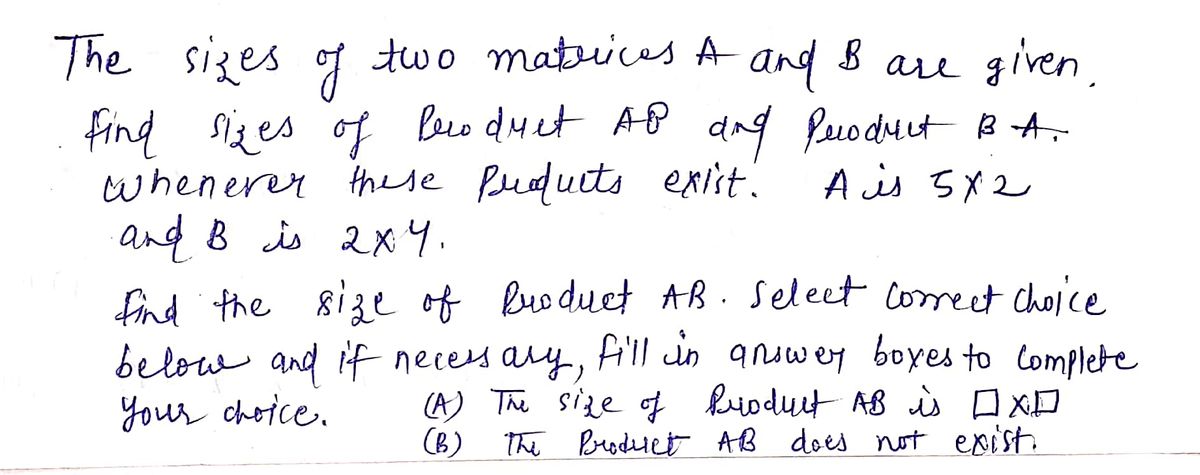 The sizes of two matrices A and B are given.
find sizes of Product AB and Product BA.
whenever these Products exist. A is 5x2
and B is 2x4.
find the size of Product AB. Select correct choice
below and if necessary, fill in answer boxes to complete
your choice. (A) The size of Product AB is □x□
(B) The Product AB does not exist.